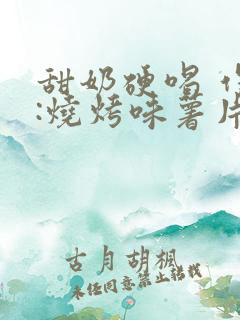 甜奶硬喝
:燒烤味薯片
古月胡楓
未经同意禁止转载